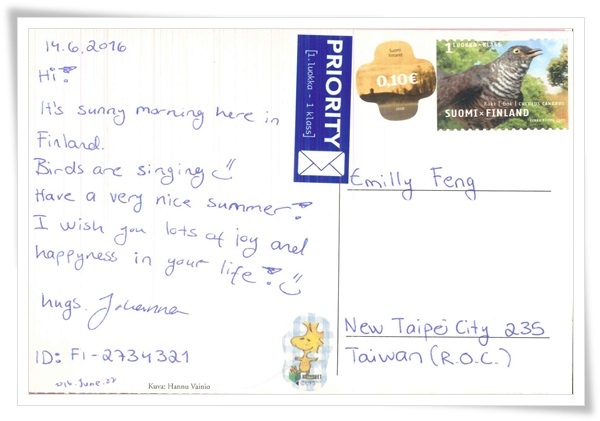 14.6.2016
Hi!
It's sunny morning here in
Finland.
Birds are singing
Have a very nice summer!
I wish you lots of joy and
happyness in your life!
hugs. Johanna
ID: FI-2734321
Kuva: Hannu Vainio
PRIORITY
[1.luokka - 1 klass]
Suomi
Finland
0,10€
1 LUOKKA·KLASS
Käki | Gök | CUCULUS CANORUS
SUOMI·FINLAND
Emilly Feng
New Taipei City 235
Taiwan (R.O.C.)